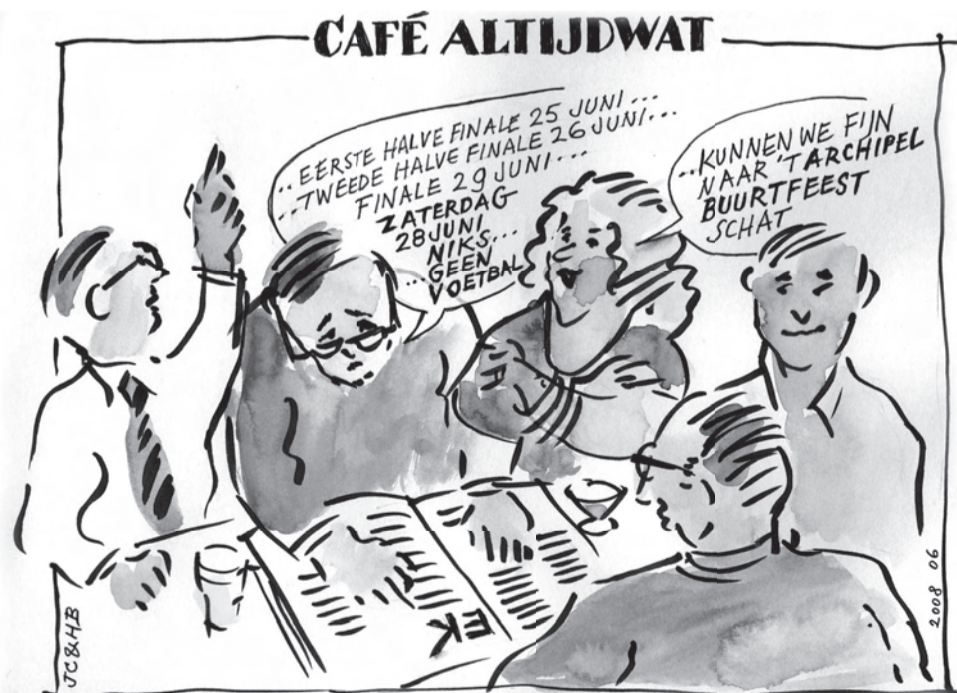 CAFÉ ALTIJDWAT
.. EERSTE HALVE FINALE 25 JUNI ...
.. TWEEDE HALVE FINALE 26 JUNI...
FINALE 29 JUNI...
ZATERDAG
28 JUNI
NIKS...
... GEEN
VOETBAL
..KUNNEN WE FIJN
NAAR 'T ARCHIPEL
BUURTFEEST
SCHAT
EK
JC&H.B
2008 06